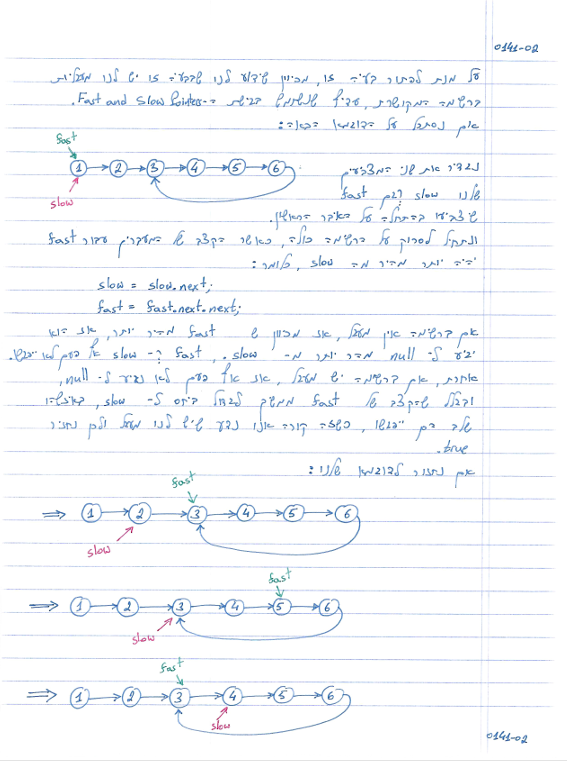 0141-02
על מנת לפתור בעיה זו, מכיוון שידוע לנו שבבעיה זו יש לנו מעגליות
ברשימה המקושרת, עדיף שנשתמש בגישת ה-Fast and Slow Pointers.
אם נסתכל על הדוגמא הבאה:
fast
1 2 3 4 5 6
slow
נגדיר את שני המצביעים
שלנו slow וגם fast
שיצביעו בהתחלה על האיבר הראשון.
ונתחיל לסרוק על הרשימה כולה, כאשר הקצב של המעברים עבור fast
יהיה יותר מהיר מה slow, כלומר:
slow = slow.next;
fast = fast.next.next;
אם ברשימה אין מעגל, אז מכיוון ש fast מהיר יותר, אז הוא
יגיע ל- null מהר יותר מ- slow. fast ו- slow אף פעם לא ייפגשו.
אחרת, אם ברשימה יש מעגל, אז אף פעם לא נגיע ל- null,
ובגלל שהקצב של fast ממשיך לגדול ביחס ל- slow, באיזשהו
שלב הם ייפגשו, כשזה קורה אנו נדע שיש לנו מעגל ולכן נחזיר
true.
אם נחזור לדוגמא שלנו:
fast
⇒ 1 2 3 4 5 6
slow
fast
⇒ 1 2 3 4 5 6
slow
fast
⇒ 1 2 3 4 5 6
slow
0141-02